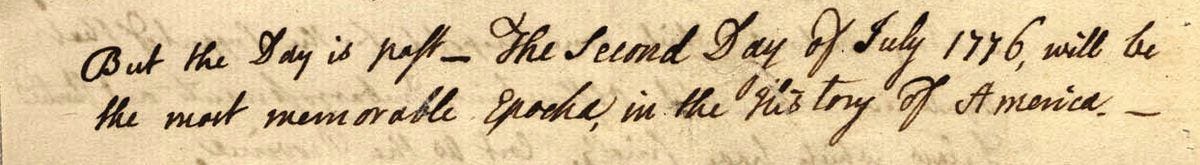 But the Day is past — The Second Day of July 1776, will be
the most memorable Epocha, in the History of America. —